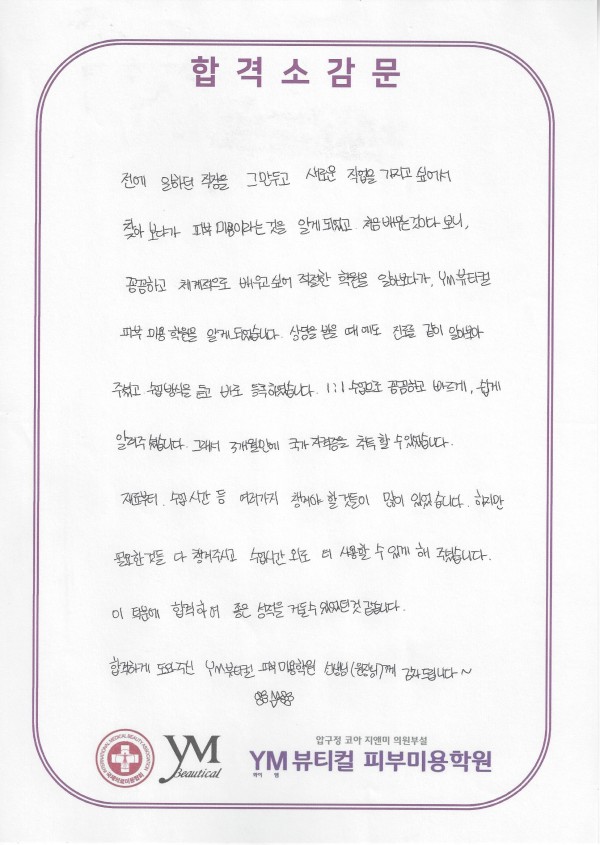 합격소감문
전에 일하던 직장을 그만두고 새로운 직업을 가지고 싶어서
찾아 보다가 피부 미용이라는 것을 알게 되었고 처음 배우는 것이다 보니,
꼼꼼하고 체계적으로 배우고 싶어 적절한 학원을 알아보다가, YM뷰티컬
피부 미용 학원을 알게 되었습니다. 상담을 받을 때에도 진로를 같이 알아봐
주셨고 수업방식을 듣고 바로 등록하였습니다. 1:1 수업으로 꼼꼼하고 바르게, 쉽게
알려주셨습니다. 그래서 3개월만에 국가자격증을 취득할 수 있었습니다.
재료부터, 수업시간 등 여러가지 챙겨야 할 것들이 많이 있었습니다. 하지만
필요한것들 다 챙겨주시고 수업시간 외로 더 사용할 수 있게 해 주셨습니다.
이 덕분에 합격하여 좋은 성적을 거둘수 있었던것 같습니다.
합격하게 도와주신 YM뷰티컬 피부미용학원 선생님(원장님)께 감사드립니다~
INTERNATIONAL MEDICAL BEAUTY ASSOCIATION
국제뷰티교협회
YM
Beautical
압구정 코아 지앤미 의원부설
YM뷰티컬 피부미용학원
와이 엠